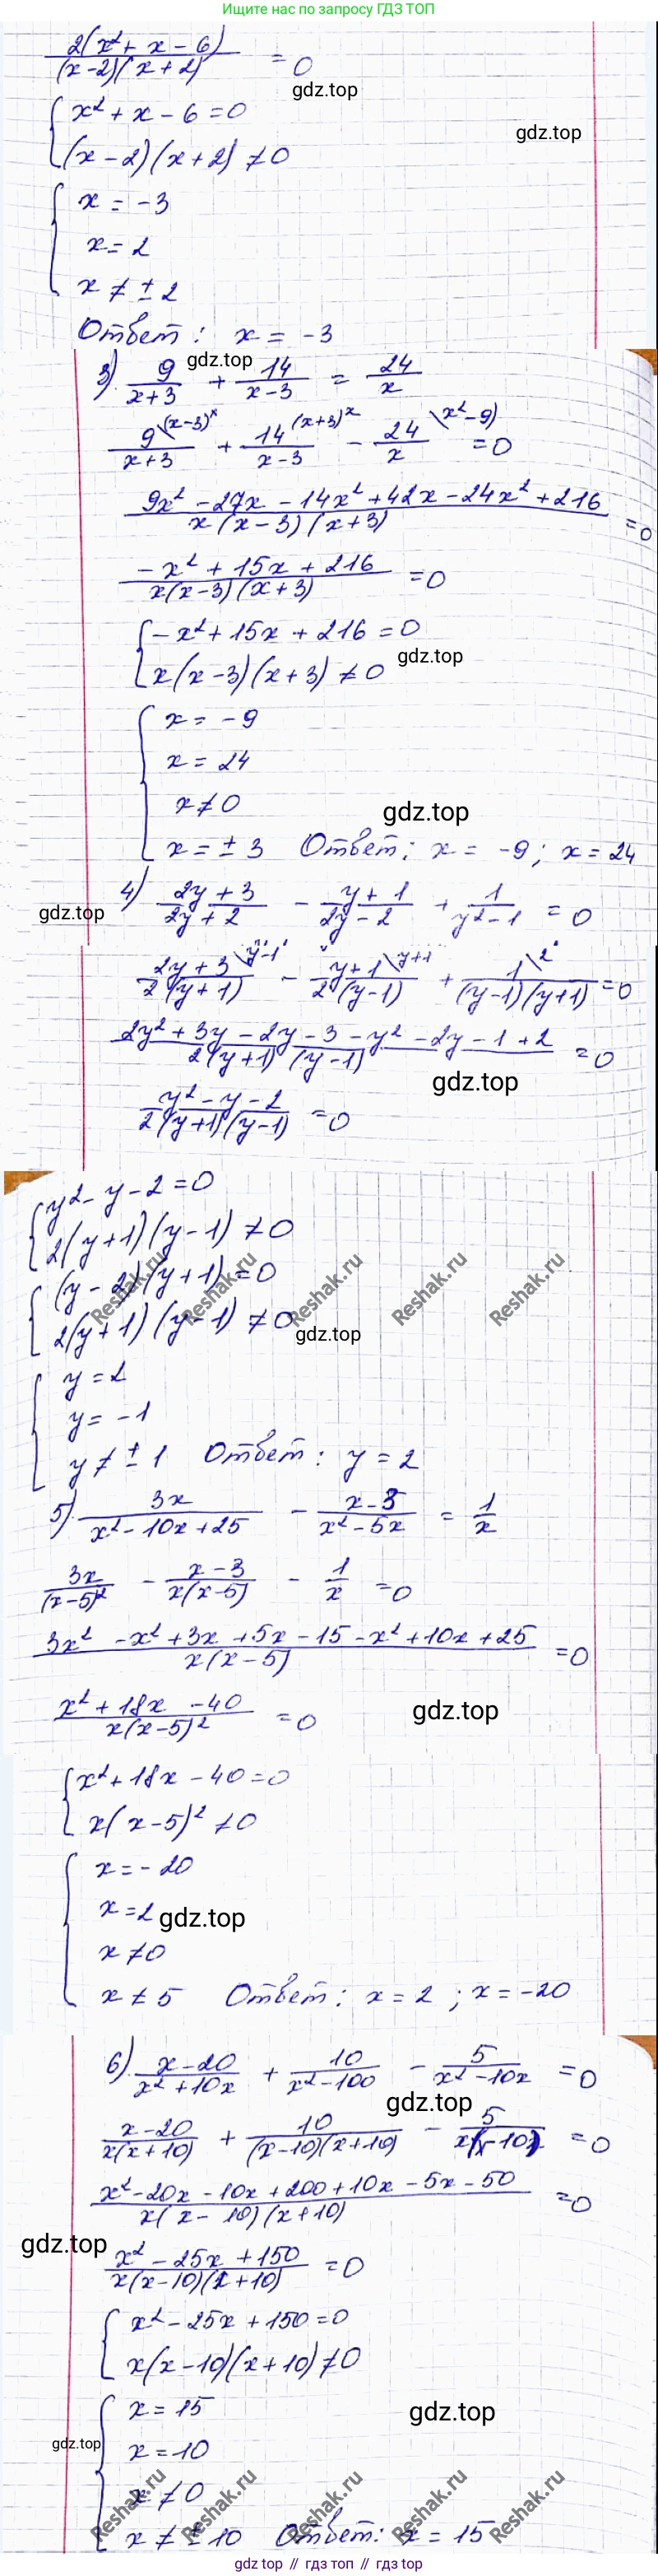 Ищите нас по запросу ГДЗ ТОП
2(x² + x - 6) / (x-2)(x+2) = 0
gdz.top
{ x² + x - 6 = 0
gdz.top
(x - 2)(x + 2) ≠ 0
{ x = -3
x = 2
x ≠ ± 2
Ответ: x = -3
gdz.top
3) 9/(x+3) + 14/(x-3) = 24/x
9\(x-3)x/(x+3) + 14\(x+3)x/(x-3) - 24\(x²-9)/x = 0
(9x² - 27x - 14x² + 42x - 24x² + 216) / x(x-3)(x+3) = 0
(-x² + 15x + 216) / x(x-3)(x+3) = 0
{ -x² + 15x + 216 = 0
x(x-3)(x+3) ≠ 0
gdz.top
{ x = -9
x = 24
x ≠ 0
gdz.top
x = ± 3 Ответ: x = -9; x = 24
4) (2y+3)/(2y+2) - (y+1)/(2y-2) + 1/(y²-1) = 0
gdz.top
2y+3\y-1/2(y+1) - y+1\y+1/2(y-1) + 1\2/(y-1)(y+1) = 0
(2y² + 3y - 2y - 3 - y² - 2y - 1 + 2) / 2(y+1)(y-1) = 0
gdz.top
(y² - y - 2) / 2(y+1)(y-1) = 0
{ y² - y - 2 = 0
2(y+1)(y-1) ≠ 0
{ (y-2)(y+1) = 0
Reshak.ru Reshak.ru Reshak.ru Reshak.ru Reshak.ru
2(y+1)(y-1) ≠ 0
gdz.top
{ y = 2
y = -1
y ≠ ± 1 Ответ: y = 2
5) 3x/(x² - 10x + 25) - (x-3)/(x² - 5x) = 1/x
3x/(x-5)² - (x-3)/x(x-5) - 1/x = 0
(3x² - x² + 3x + 5x - 15 - x² + 10x + 25) / x(x-5) = 0
(x² + 18x - 40) / x(x-5)² = 0
gdz.top
{ x² + 18x - 40 = 0
x(x-5)² ≠ 0
{ x = -20
x = 2
gdz.top
x ≠ 0
x ≠ 5 Ответ: x = 2; x = -20
6) (x-20)/(x² + 10x) + 10/(x² - 100) - 5/(x² - 10x) = 0
gdz.top
(x-20)/x(x+10) + 10/(x-10)(x+10) - 5/x(x-10) = 0
(x² - 20x - 10x + 200 + 10x - 5x - 50) / x(x-10)(x+10) = 0
gdz.top
(x² - 25x + 150) / x(x-10)(x+10) = 0
{ x² - 25x + 150 = 0
x(x-10)(x+10) ≠ 0
{ x = 15
gdz.top
gdz.top
x = 10
x ≠ 0
Reshak.ru Reshak.ru Reshak.ru Reshak.ru Reshak.ru
x ≠ ± 10 Ответ: x = 15
gdz top // гдз топ // гдз top